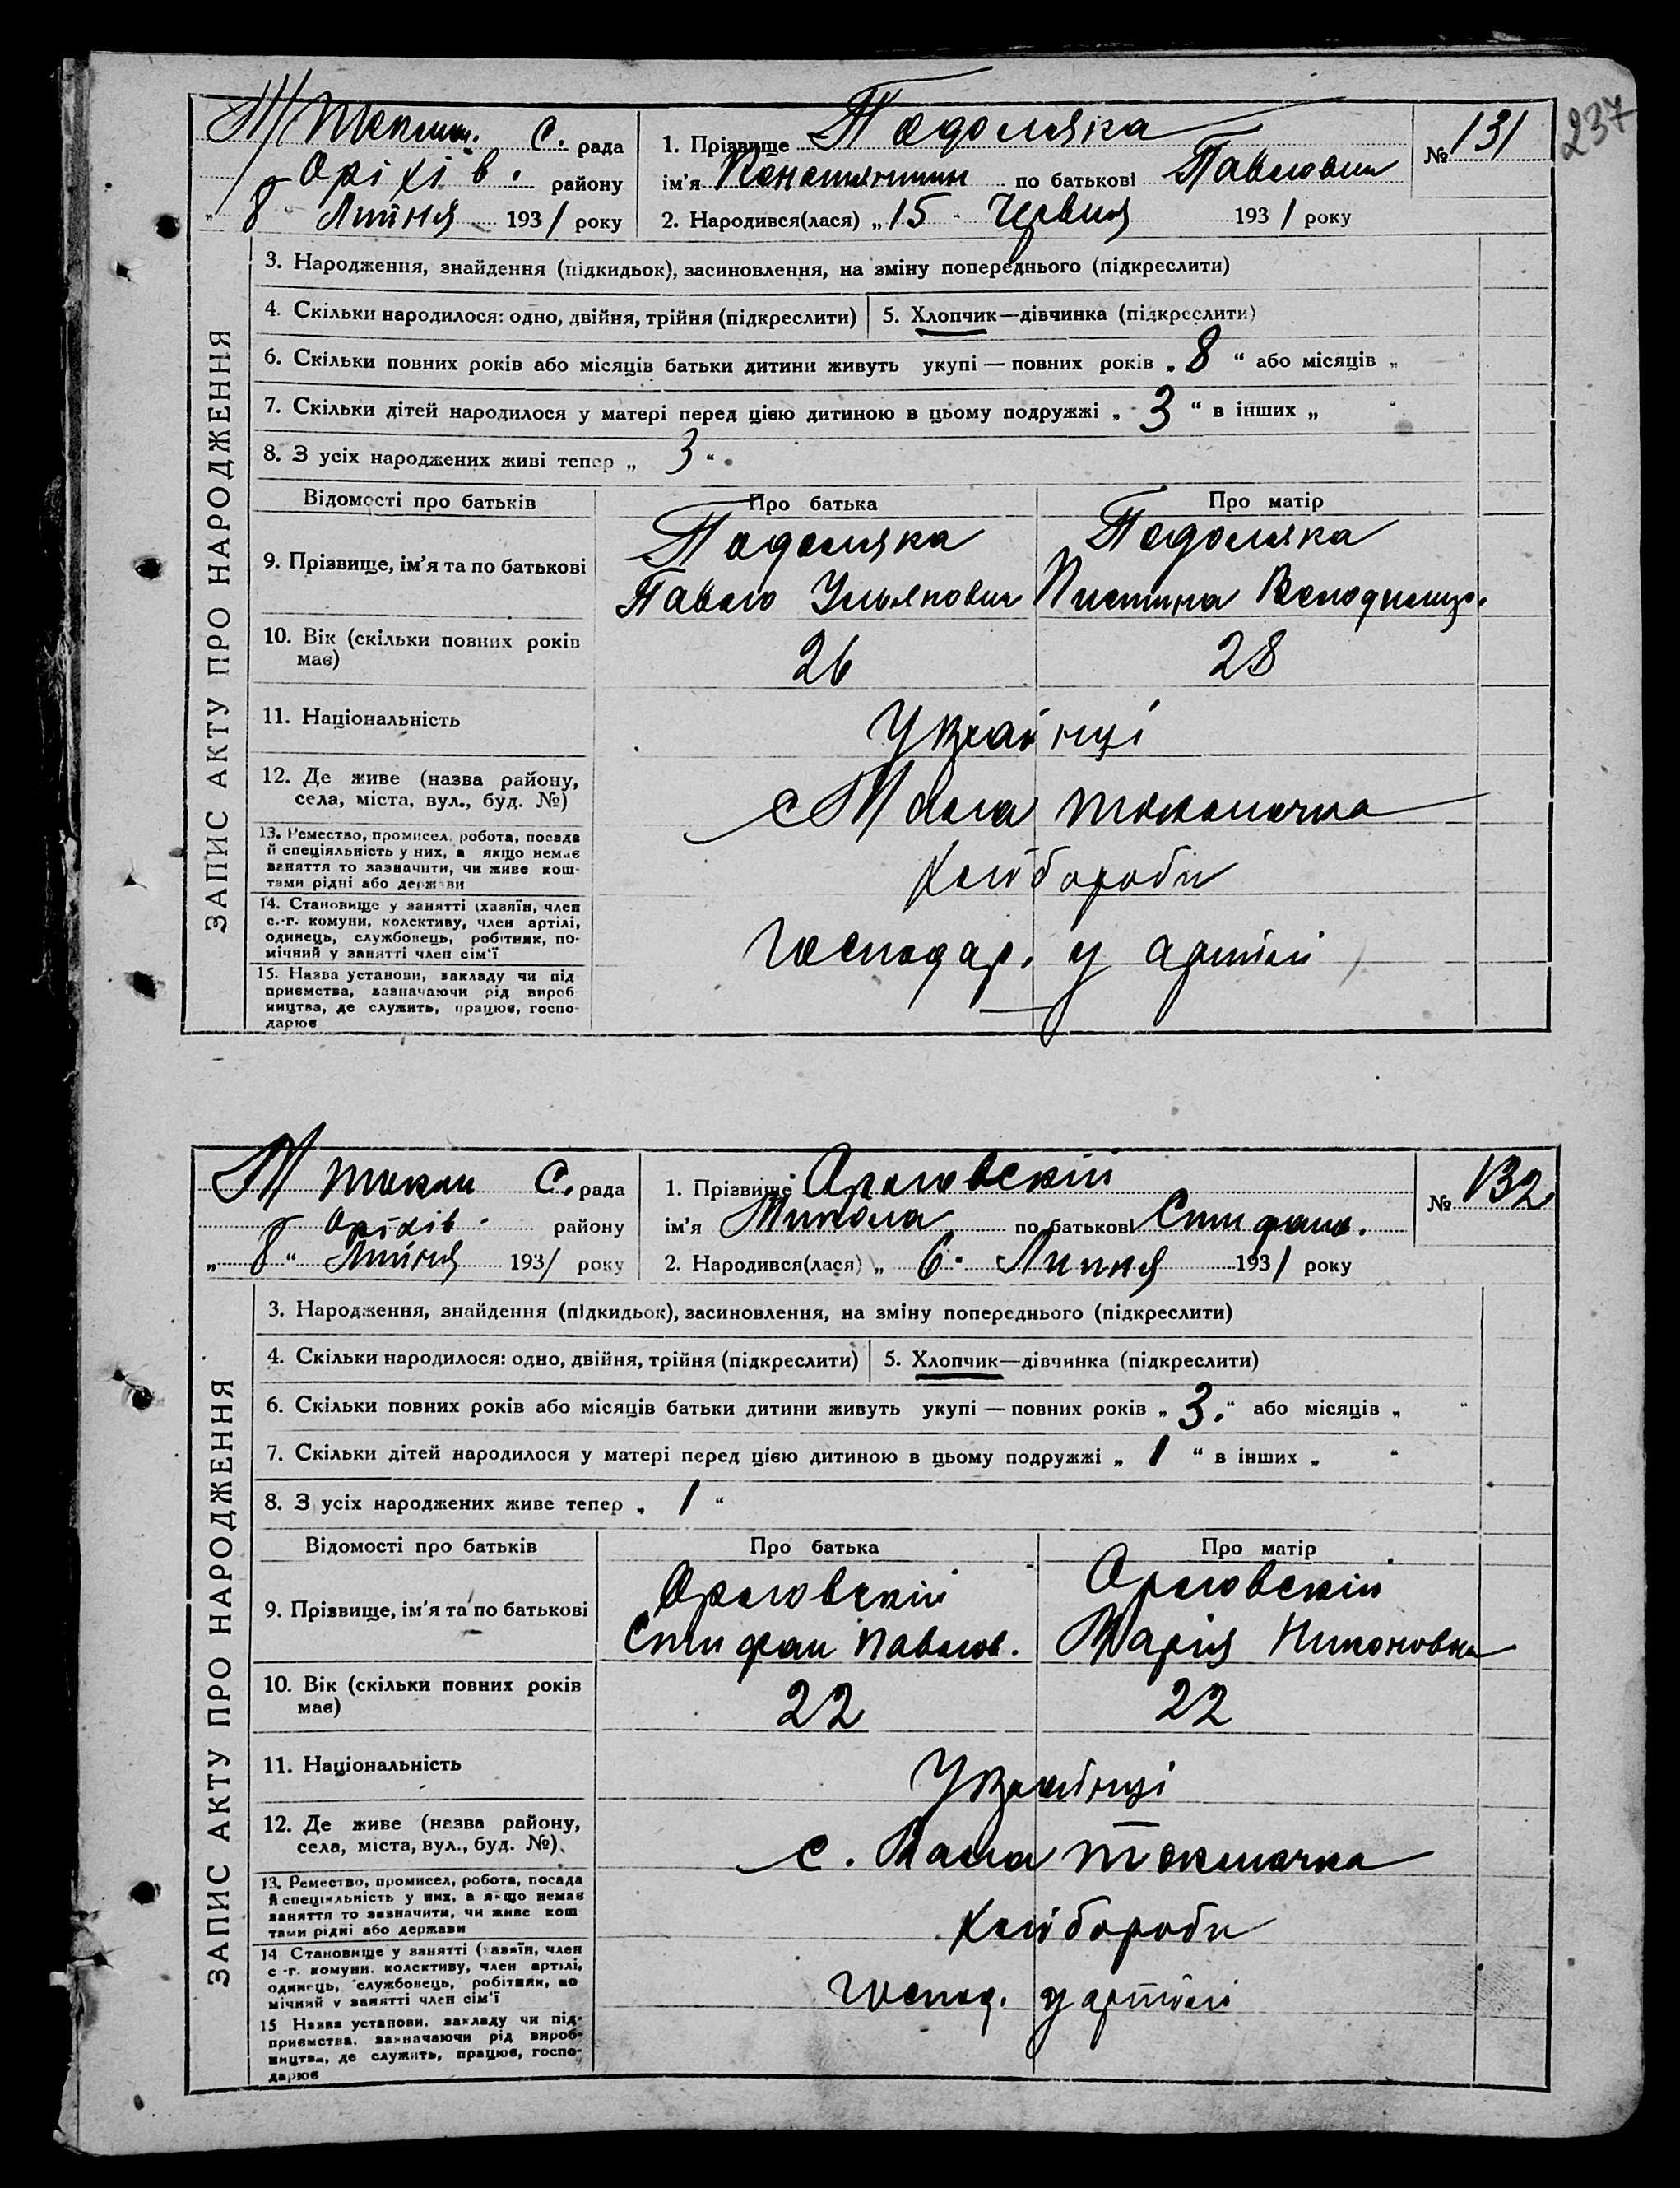 237
М/Токмач. С. рада
Оріхів. району
„ 8 Липня 1931 року
1. Прізвище Подоляка
ім'я Констянтин по батькові Павлович
№ 131
2. Народився(лася) „ 15 " Червня 1931 року
ЗАПИС АКТУ ПРО НАРОДЖЕННЯ
3. Народження, знайдення (підкидьок), засиновлення, на зміну попереднього (підкреслити)
4. Скільки народилося: одно, двійня, трійня (підкреслити)
5. Хлопчик—дівчинка (підкреслити)
6. Скільки повних років або місяців батьки дитини живуть укупі — повних років „ 8 “ або місяців „ “
7. Скільки дітей народилося у матері перед цією дитиною в цьому подружжі „ 3 “ в інших „ “
8. З усіх народжених живі тепер „ 3 “.
Відомості про батьків
Про батька
Про матір
9. Прізвище, ім'я та по батькові
Подоляка
Павло Ульянович
Подоляка
Пистина Володимир.
10. Вік (скільки повних років
має)
26
28
11. Національність
Українці
12. Де живе (назва району,
села, міста, вул., буд. №)
с Мала Токмачка
13. Ремество, промисел, робота, посада
й спеціяльність у них, а якщо немає
заняття то зазначити, чи живе кош-
тами рідні або держави
Хлібороби
14. Становище у занятті (хазяїн, член
с.-г. комуни, колективу, член артілі,
одинець, службовець, робітник, по-
мічний у занятті член сім'ї
Господар. у артілі
15. Назва установи, закладу чи під
приємства, зазначаючи рід вироб
ництва, де служить, працює, госпо-
дарює
М Токм С. рада
Оріхів. району
„ 8 “ Липня 1931 року
1. Прізвище Орловскій
ім'я Микола по батькові Стифано.
№ 132
2. Народився(лася) „ 6 " Липня 1931 року
ЗАПИС АКТУ ПРО НАРОДЖЕННЯ
3. Народження, знайдення (підкидьок), засиновлення, на зміну попереднього (підкреслити)
4. Скільки народилося: одно, двійня, трійня (підкреслити)
5. Хлопчик—дівчинка (підкреслити)
6. Скільки повних років або місяців батьки дитини живуть укупі — повних років „ 3. “ або місяців „ “
7. Скільки дітей народилося у матері перед цією дитиною в цьому подружжі „ 1 “ в інших „ “
8. З усіх народжених живе тепер „ 1 “
Відомості про батьків
Про батька
Про матір
9. Прізвище, ім'я та по батькові
Орловскій
Стифан Павлов.
Орловскій
Марія Никоновна
10. Вік (скільки повних років
має)
22
22
11. Національність
Українці
12. Де живе (назва району,
села, міста, вул., буд. №)
с. Мала Токмачка
13. Ремество, промисел, робота, посада
й спеціяльність у них, а якщо немає
заняття то зазначити, чи живе кош
тами рідні або держави
Хлібороби
14 Становище у занятті (хазяїн, член
с-г. комуни, колективу, член артілі,
одинець, службовець, робітник, по
мічний у занятті член сім'ї
Господ. у артілі
15 Назва установи, закладу чи під-
приємства, зазначаючи рід вироб-
ництва, де служить, працює, госпо-
дарює